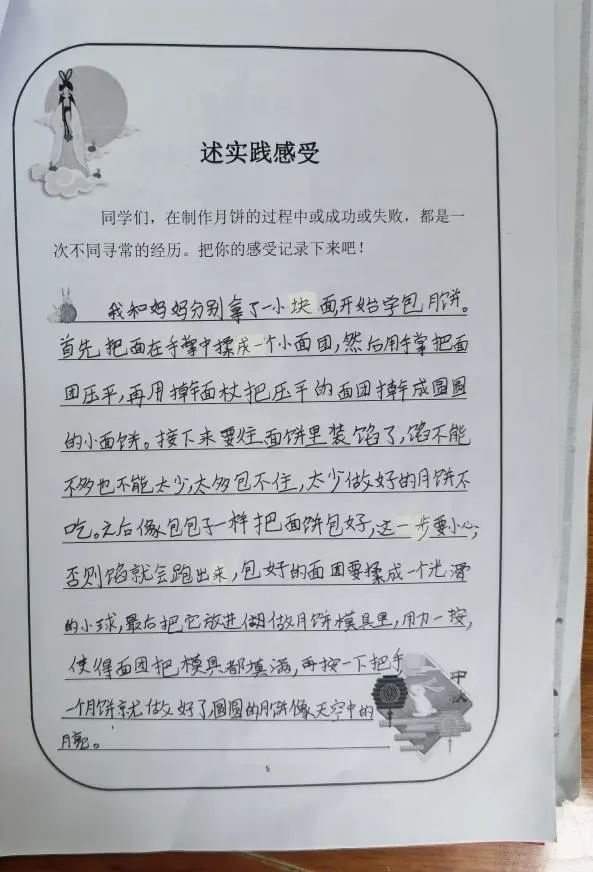 述实践感受
同学们，在制作月饼的过程中或成功或失败，都是一
次不同寻常的经历。把你的感受记录下来吧！
我和妈妈分别拿了一小块面,开始学包月饼。
首先把面在手掌中揉成一个小面团,然后用手掌把面
团压平,再用擀面杖把压平的面团擀成圆圆
的小面饼。接下来要往面饼里装馅了,馅不能
不多也不能太少,太多包不住,太少做好的月饼不
吃。之后像包包子一样把面饼包好,这一步要小心,
否则馅就会跑出来,包好的面团要揉成一个光滑
的小球,最后把它放进做月饼模具里,用力一按,
使得面团把模具都填满,再按一下把手
一个月饼就做好了,圆圆的月饼像天空中的
月亮。
中秋
5